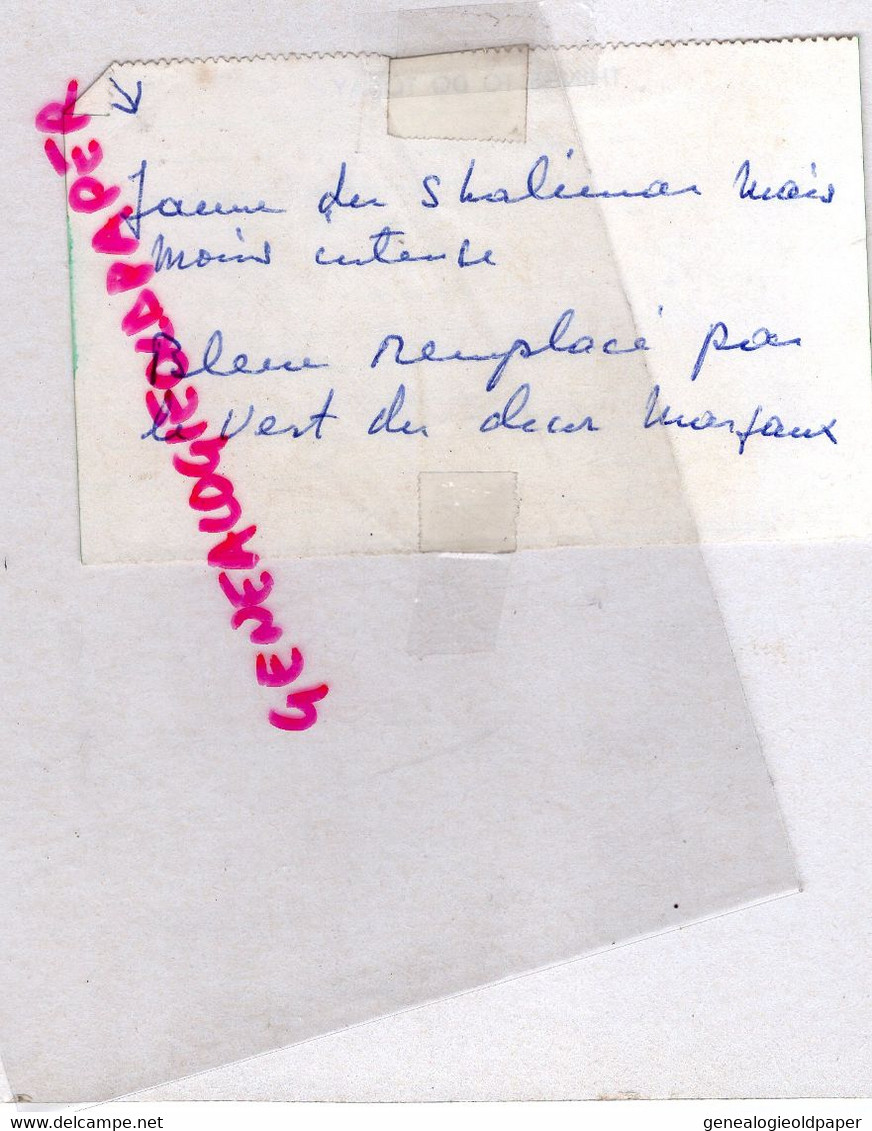 Jaune du Shalimar Mais
Moins intense
Bleu remplacé par
le Vert du decor Margaux
GENEALOGIEOLDPAPER
THINGS TO DO TODAY
genealogieoldpaper